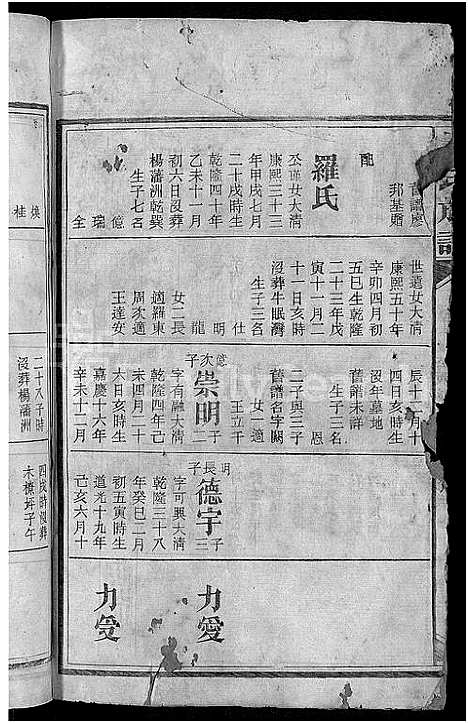 舊譜廖
邦基嬭
配
羅氏
丕瑾女大清
康熙三十三
年甲戌七月
二十戌時生
乾隆四十年
乙未十一月
初六日沒葬
楊藩洲乾巽
生子七名
億
瑞
全
世選女大清
康熙五十年
辛卯四月初
五巳生乾隆
二十三年戊
寅十一月二
十一日亥時
沒葬牛眠灣
生子三名
仕
明
龍
女二長
適羅東
周次適
王達安
辰十二月十
四日亥時生
沒年墓地
舊譜未詳
生子三名
恩
二子興三子
舊譜名字闕
女一適
王立千
億次子
崇明
二子
字有融大清
乾隆四年己
未四月二十
六日亥時生
嘉慶十六年
辛未十二月
明長子
德宇
三子
字可興大清
乾隆三十八
年癸巳二月
初五寅時生
道光十九年
己亥六月十
力愛
力受
煥
桂
二十八子時
沒葬楊藩洲
未橡坪子午